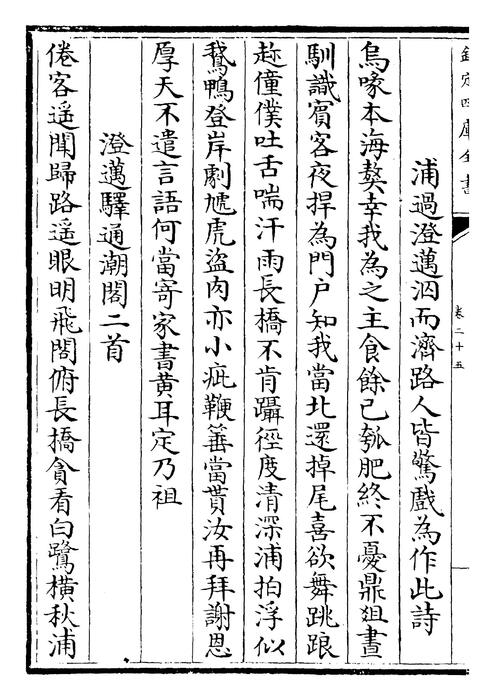 欽定四庫全書
卷二十五
浦過澄邁泅而濟路人皆驚戲為作此詩
烏喙本海獒幸我為之主食餘已瓠肥終不憂鼎俎晝
馴識賓客夜捍為門户知我當北還掉尾喜欲舞跳踉
趂僮僕吐舌喘汗雨長橋不肯躡徑度清深浦拍浮似
鵝鴨登岸劇虓虎盜肉亦小疵鞭箠當貰汝再拜謝恩
厚天不遣言語何當寄家書黄耳定乃祖
澄邁驛通潮閣二首
倦客遥聞歸路遥眼明飛閣俯長橋貪看白鷺横秋浦